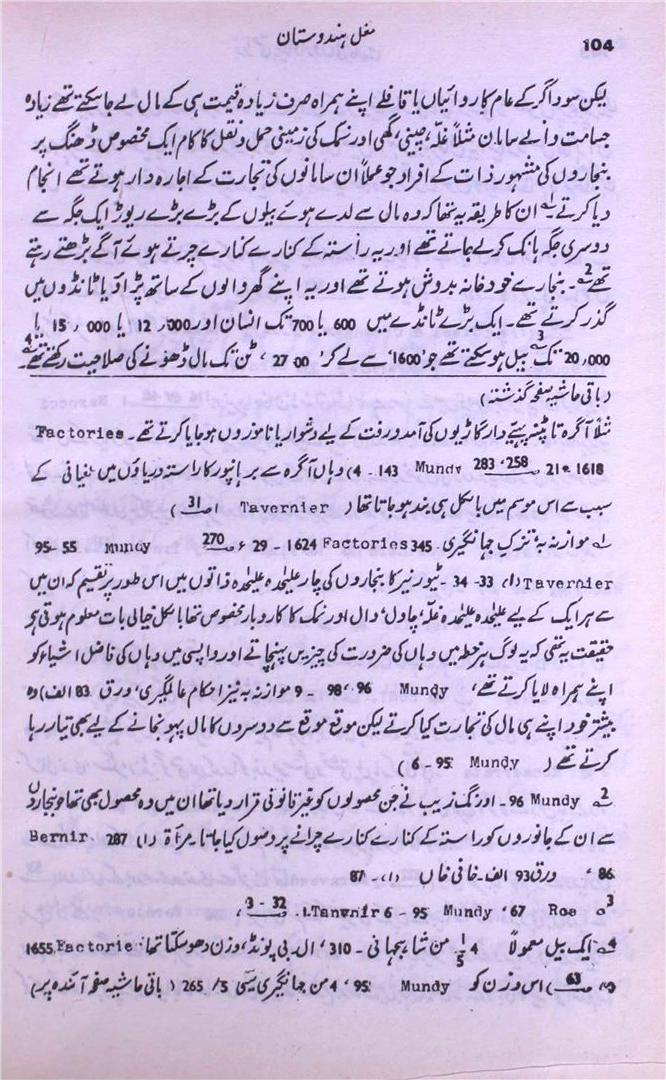 104
مغل ہندوستان
لیکن سوداگر کے عام کارواں یا قافلے اپنے ہمراہ صرف زیادہ قیمت ہی کے مال لے جا سکتے تھے زیادہ
جسامت والے سامان مثلاً غلّہ، چینی، گھی اور نمک کی زمینی حمل و نقل کا کام ایک مخصوص ڈھنگ پر
بنجاروں کی مشہور ذات کے افراد جو عملاً ان سامانوں کی تجارت کے اجارہ دار ہوتے تھے انجام
دیا کرتے۔ ان کا طریقہ یہ تھا کہ وہ مال سے لدے ہوئے بیلوں کے بڑے بڑے ریوڑ ایک جگہ سے
دوسری جگہ ہانک کر لے جاتے تھے اور یہ راستہ کے کنارے کنارے چرتے ہوئے آگے بڑھتے رہتے
تھے2۔ بنجارے خود خانہ بدوش ہوتے تھے اور یہ اپنے گھر والوں کے ساتھ پڑاؤ یا ٹانڈوں میں
گذر کرتے تھے۔ ایک بڑے ٹانڈے میں 600 یا 700 تک انسان اور 12,000 یا 15,000 یا
20,000 تک3 بیل ہو سکتے تھے جو 1600 سے لے کر 2700 ٹن تک مال ڈھونے کی صلاحیت رکھتے تھے۔4
(باقی حاشیہ صفحہ گذشتہ)
مثلاً آگرہ تا پٹنہ پہیّے دار گاڑیوں کی آمد و رفت کے لیے دشوار یا ناموزوں ہو جایا کرتے تھے۔ Factories
1618 - 21، 258، 283 Mundy 143 - 4) وہاں آگرہ سے برہانپور کا راستہ دریاؤں میں طغیانی کے
سبب سے اس موسم میں بالکل ہی بند ہو جاتا تھا ( Tavernier 1صـ 31 )
موازنہ بہ تزک جہانگیری 345 Factories 1624 - 29 ء 270 Mundy 55 - 95
Tavernier (1) 33 - 34۔ ٹیورنیر کا بنجاروں کی چار علیٰحدہ علیٰحدہ ذاتوں میں اس طور پر تقسیم کہ ان میں
سے ہر ایک کے لیے علیٰحدہ علیٰحدہ غلّہ، چاول، دال اور نمک کا کاروبار مخصوص تھا بالکل خیالی بات معلوم ہوتی ہو
حقیقت یہ تھی کہ یہ لوگ ہر خطہ میں وہاں کی ضرورت کی چیزیں پہنچاتے اور واپسی میں وہاں کی فاضل اشیاء کو
اپنے ہمراہ لایا کرتے تھے، Mundy 96، 98 - 9 موازنہ بہ نیز احکام عالمگیری، ورق 83 الف) وہ
بیشتر خود اپنے ہی مال کی تجارت کیا کرتے لیکن موقع موقع سے دوسروں کا مال پہونچانے کے لیے بھی تیار رہا
کرتے تھے ( Mundy 95 - 6)
2 Mundy 96۔ اورنگ زیب نے جن محصولوں کو غیر قانونی قرار دیا تھا ان میں وہ محصول بھی تھا جو بنجاروں
سے ان کے جانوروں کو راستہ کے کنارے کنارے چرانے پر وصول کیا جاتا۔ مرآة (1) 287 Bernir.
86، ورق 93 الف۔ خافی خاں (1)۔ 87
3 Roe 67، Mundy 95 - 6 Tanwrir.1 32 - 3،
4 ایک بیل معمولاً 4 1/5 من شاہجہانی - 310، ال بی پونڈ، وزن ڈھو سکتا تھا Factorie: 1655
صـ 63) اس وزن کو Mundy 95، 4 من جہانگیری یعنی 5/ 265 ( باقی حاشیہ صفحہ آئندہ پر)